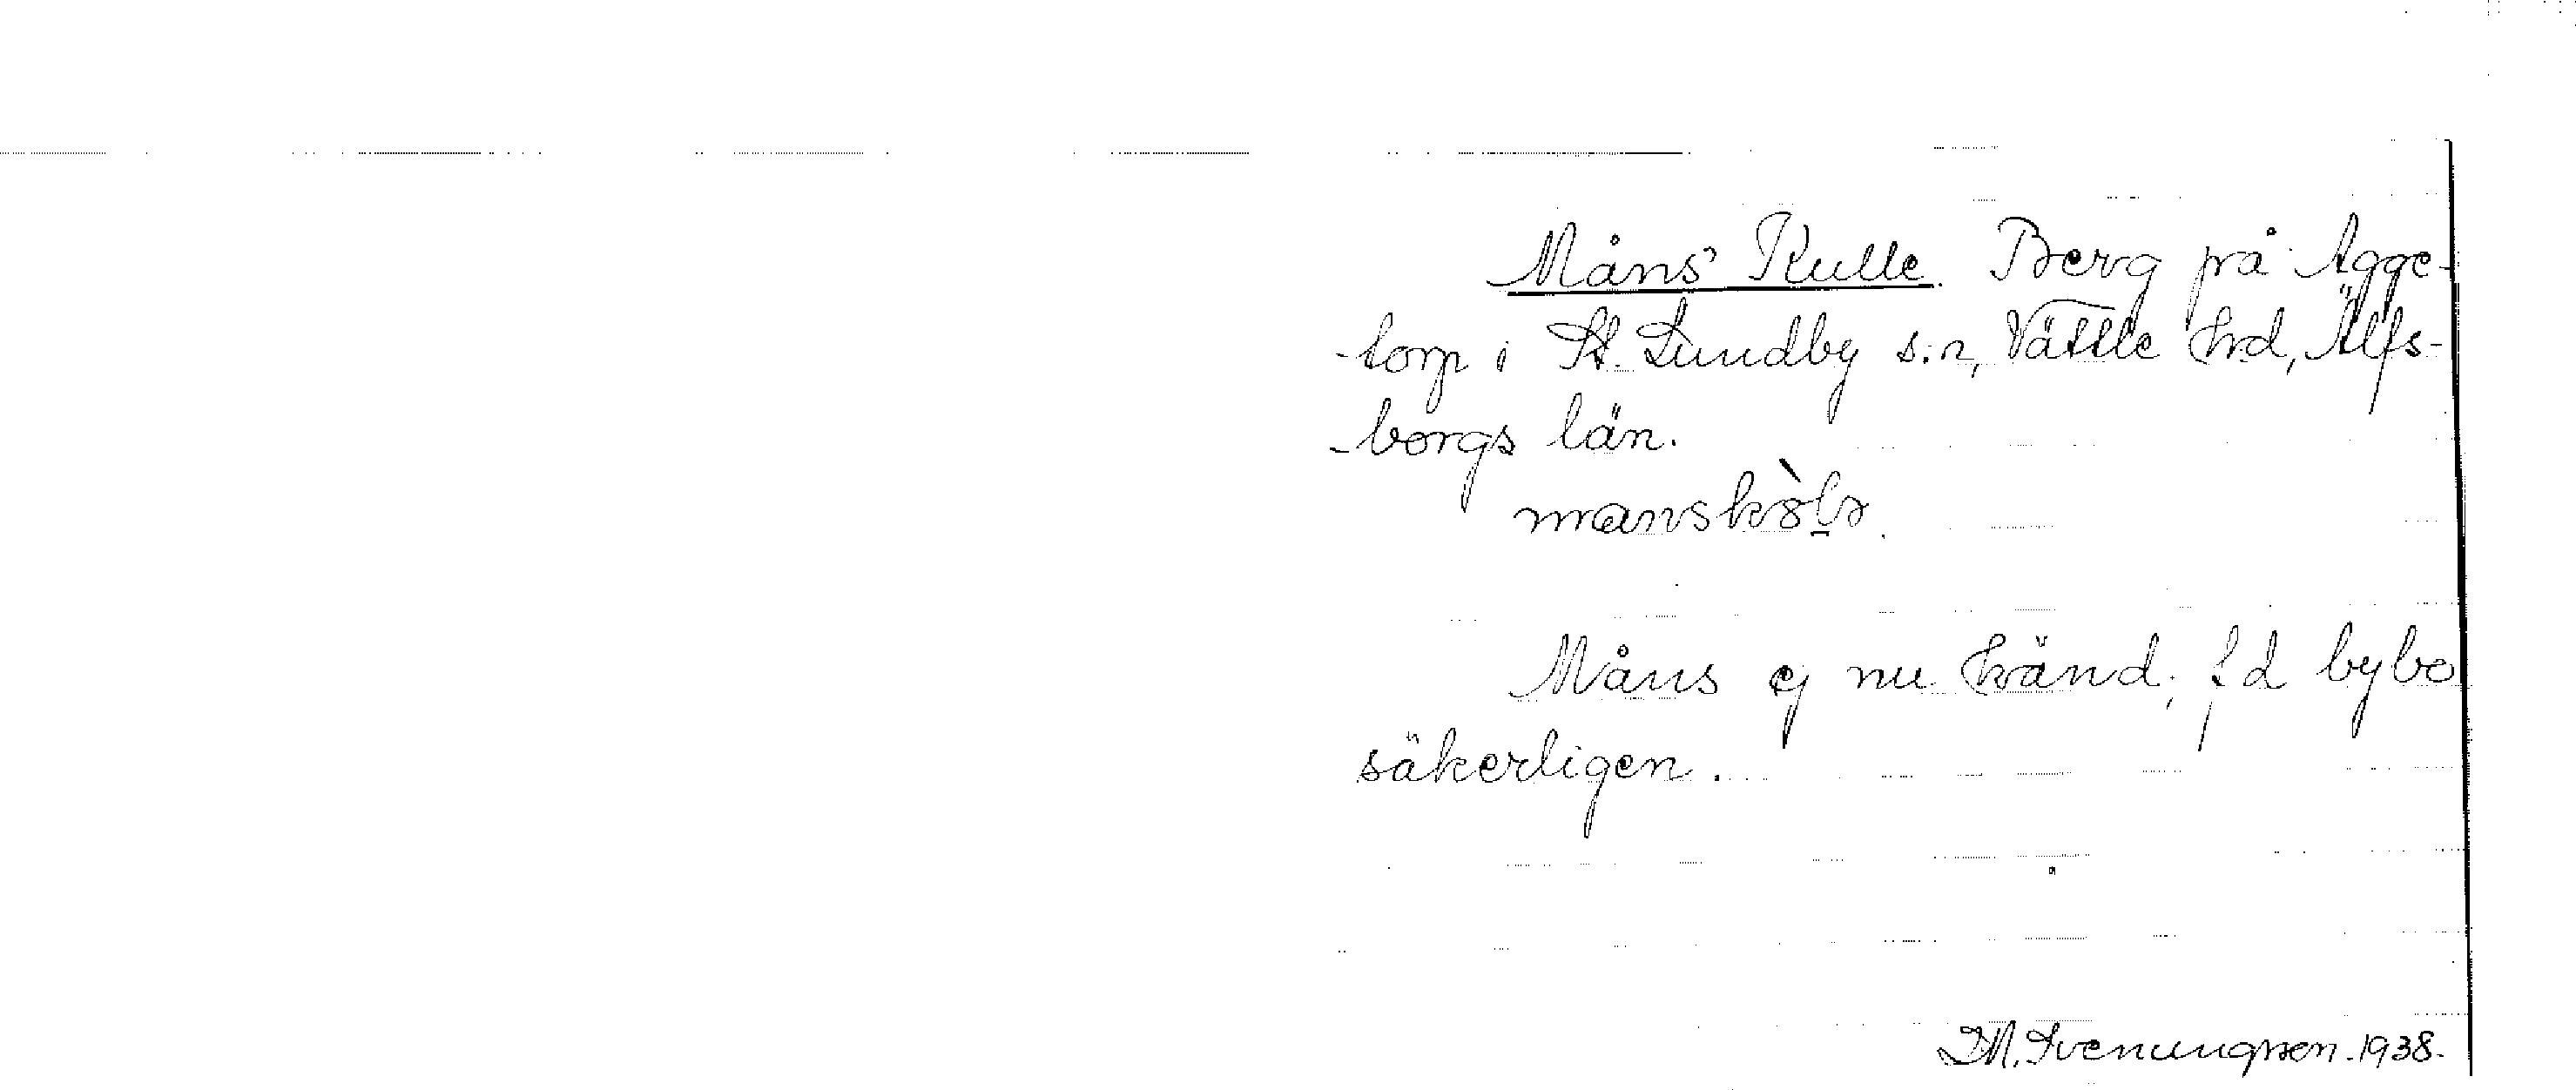 Måns' Kulle. Berg på Agge-
-torp i St. Lundby s:n, Vättle hrd, Älfs-
-borgs län.
manskòlɘ.
Måns ej nu känd; f d bybo
säkerligen.
I M. Svenungsson. 1938.